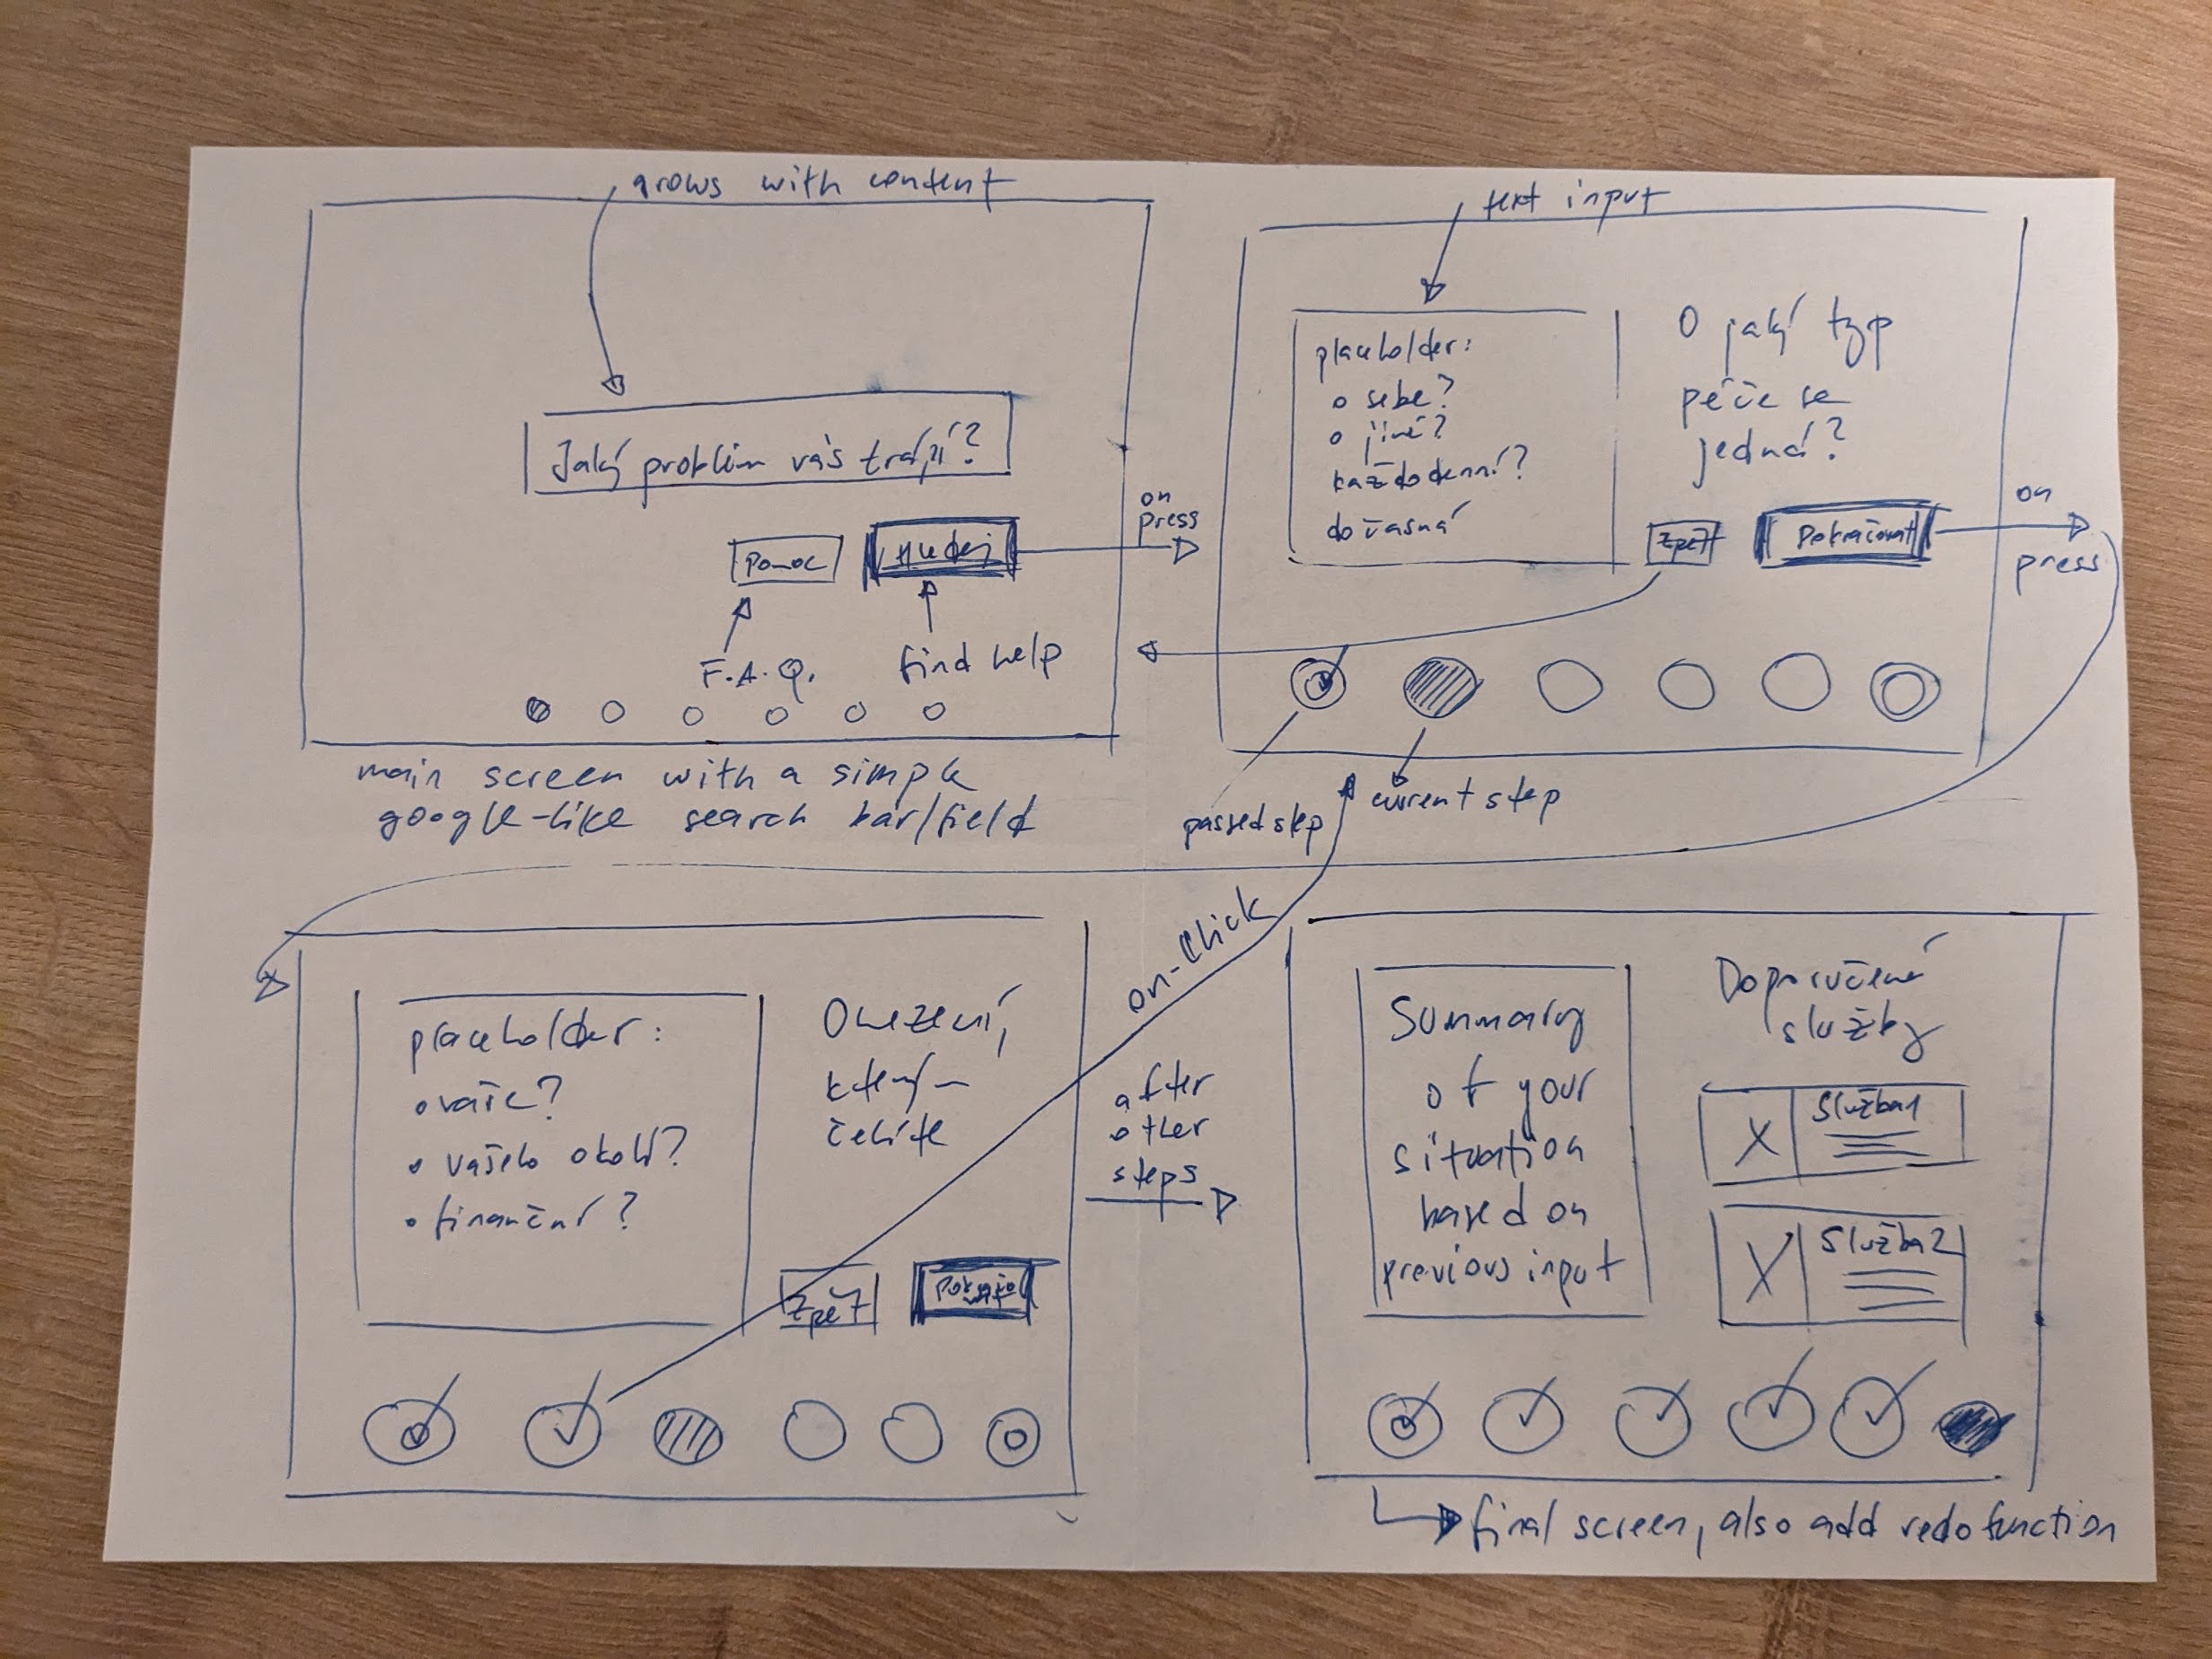 grows with content
Jaký problém vás trápí?
Pomoc
Hledej
on
press
F.A.Q.
find help
main screen with a simple
google-like search bar/field
text input
placeholder:
o sebe?
o jiné?
každodenní?
dočasná
O jaký typ
péče se
jedná?
Zpět
Pokračovat
on
press
passed step
current step
placeholder:
vaše?
vašeho okolí?
finanční?
Omezení,
kterým
čelíte
Zpět
Pokračovat
on-click
after
other
steps
Summary
of your
situation
based on
previous input
Doporučené
služby
Služba1
Služba2
final screen, also add redo function